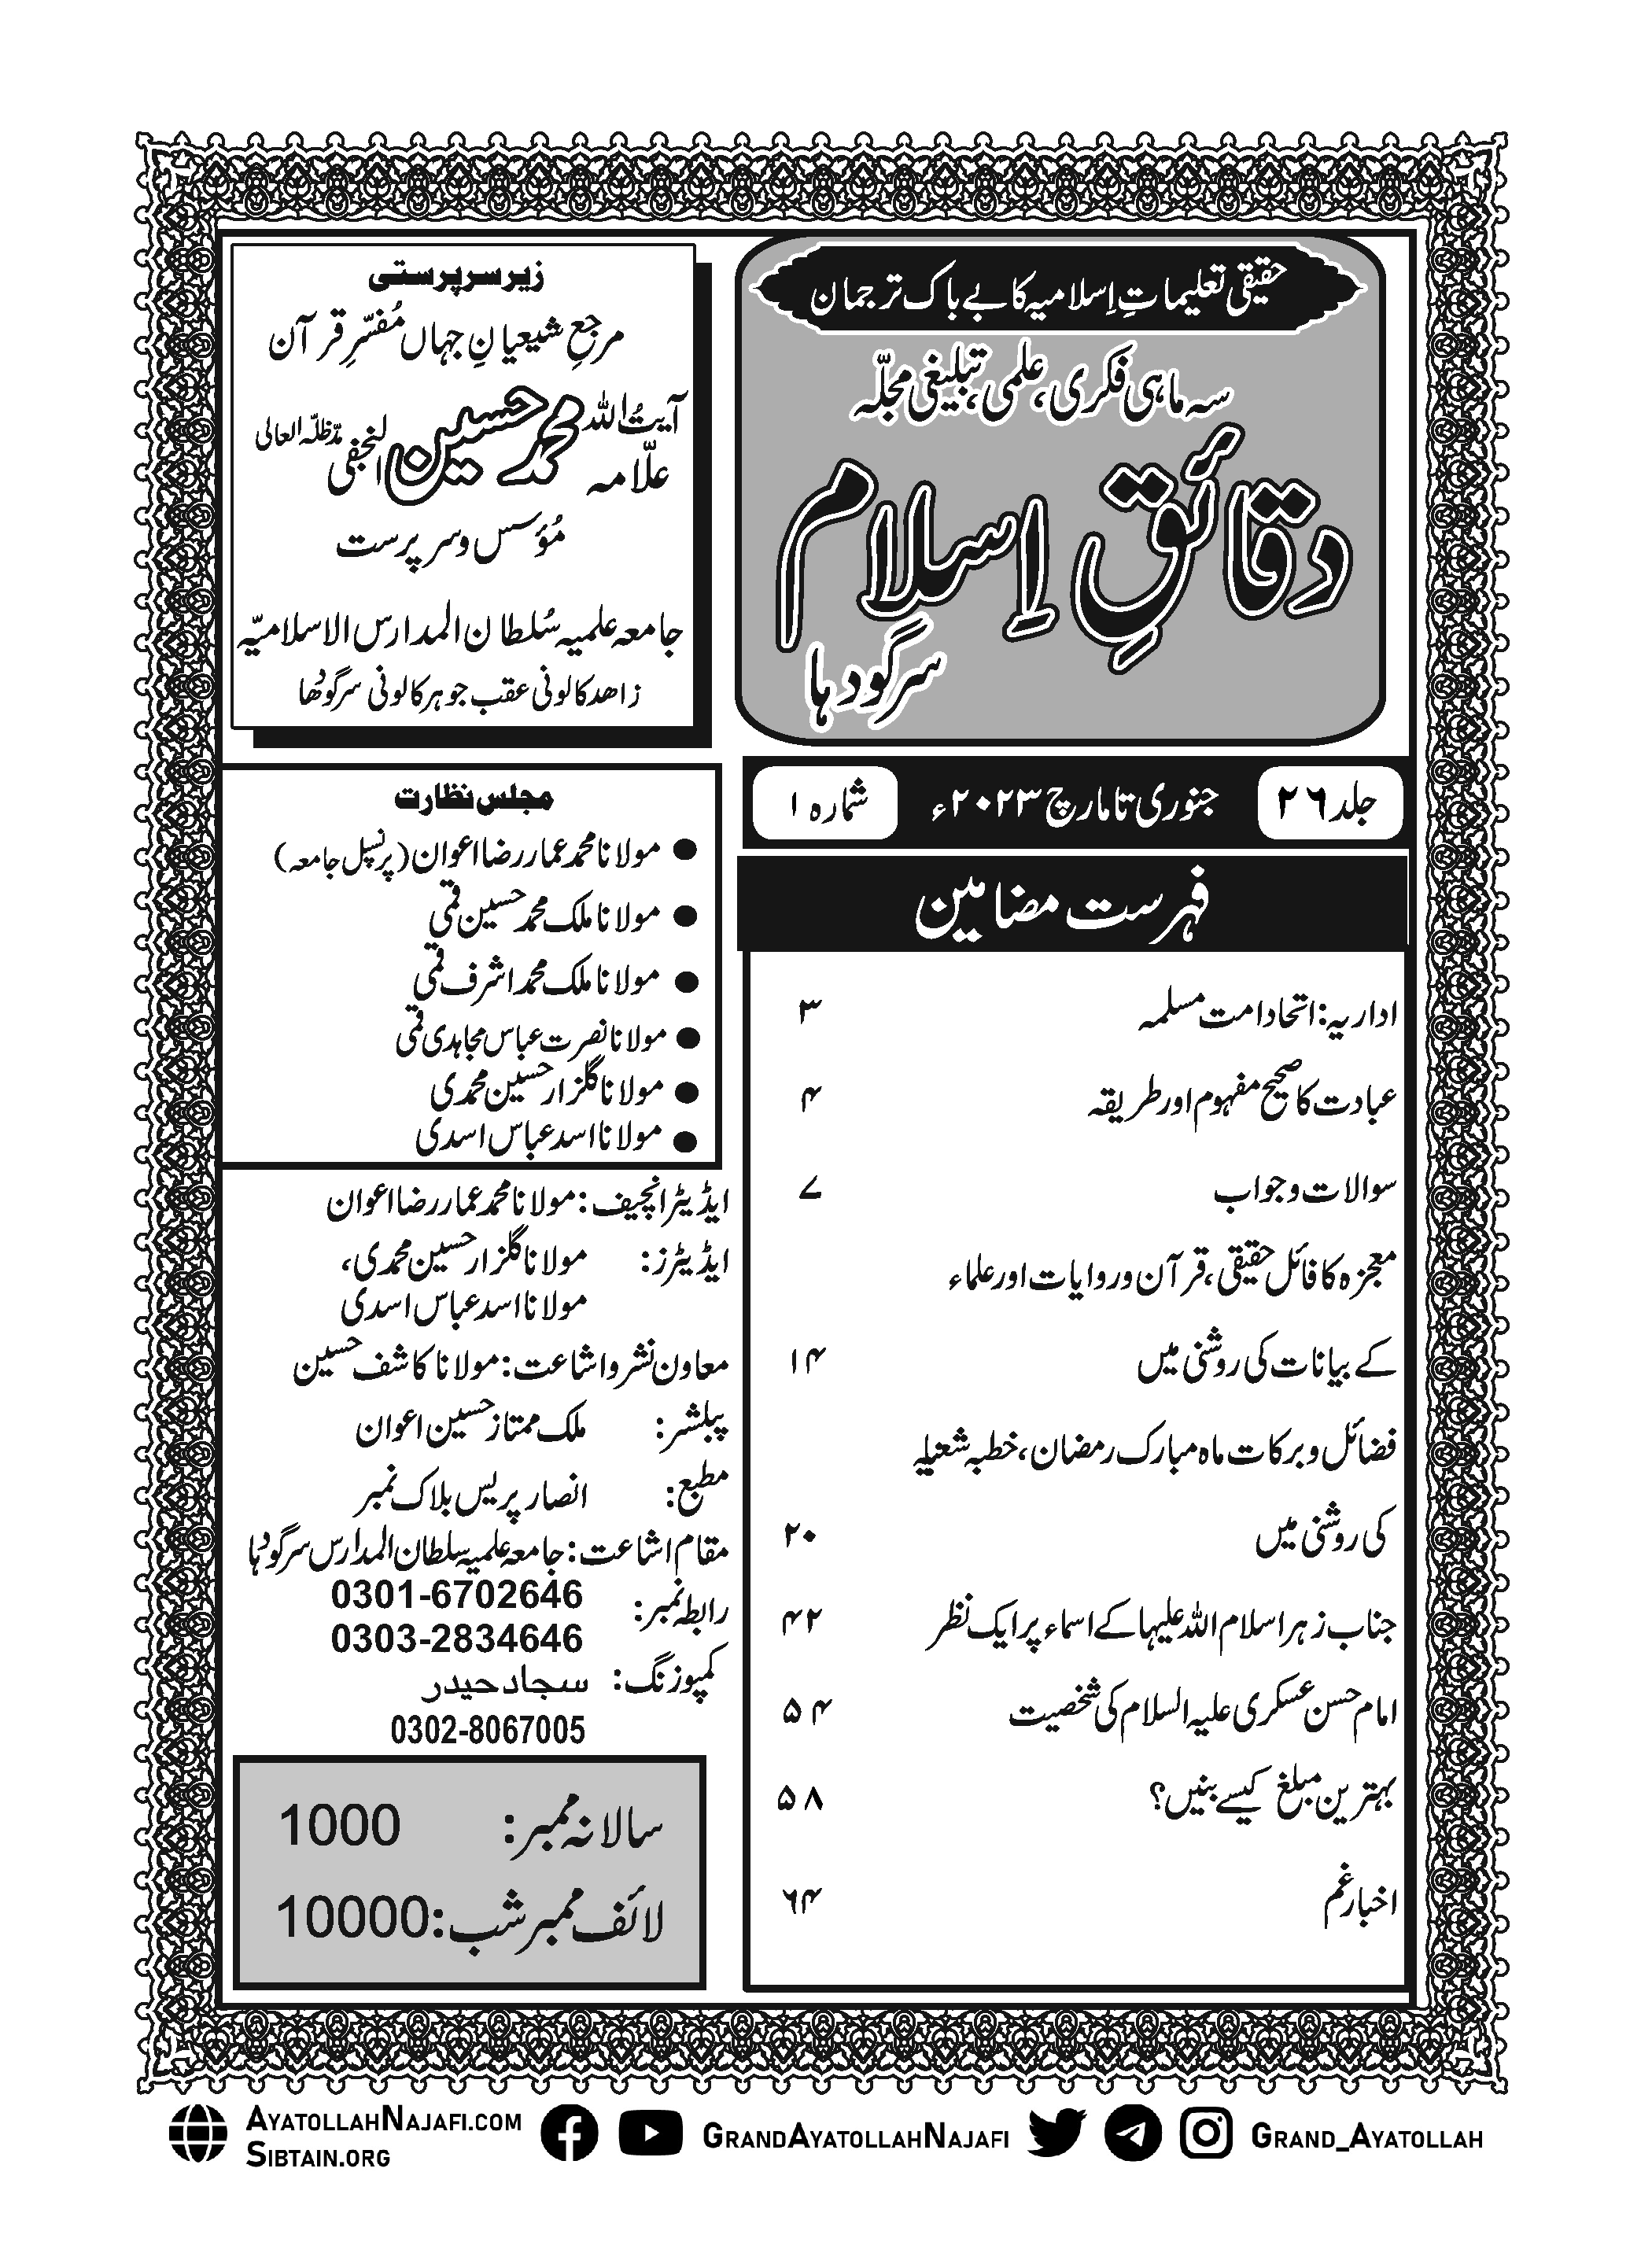 حقیقی تعلیماتِ اِسلامیہ کا بے باک ترجمان
سہ ماہی فکری، علمی، تبلیغی مجلّہ
دقائقِ اِسلام
سرگودہا
جلد ۲۶
جنوری تا مارچ ۲۰۲۳ء
شمارہ ۱
فہرست مضامین
اداریہ: اتحاد امت مسلمہ ۳
عبادت کا صحیح مفہوم اور طریقہ ۴
سوالات و جواب ۷
معجزہ کا فائل حقیقی، قرآن و روایات اور علماء
کے بیانات کی روشنی میں ۱۴
فضائل و برکات ماہ مبارک رمضان، خطبہ شعبانیہ
کی روشنی میں ۲۰
جناب زہرا سلام اللہ علیہا کے اسماء پر ایک نظر ۴۲
امام حسن عسکری علیہ السلام کی شخصیت ۵۴
بہترین مبلغ کیسے بنیں؟ ۵۸
اخبار غم ۶۴
زیر سرپرستی
مرجعِ شیعیانِ جہاں مُفسّرِ قرآن
آیت اللہ علاّمہ محمد حسین النجفی مدّظلّہ العالی
مؤسس و سرپرست
جامعہ علمیہ سُلطان المدارس الاسلامیّہ
زاھد کالونی عقب جوہر کالونی سرگودھا
مجلس نظارت
● مولانا محمد عمار رضا اعوان (پرنسپل جامعہ)
● مولانا ملک محمد حسین قمی
● مولانا ملک محمد اشرف قمی
● مولانا نصرت عباس مجاہدی قمی
● مولانا گلزار حسین محمدی
● مولانا اسد عباس اسدی
ایڈیٹر انچیف: مولانا محمد عمار رضا اعوان
ایڈیٹرز: مولانا گلزار حسین محمدی،
مولانا اسد عباس اسدی
معاون نشر و اشاعت: مولانا کاشف حسین
پبلشر: ملک ممتاز حسین اعوان
مطبع: انصار پریس بلاک نمبر
مقام اشاعت: جامعہ علمیہ سلطان المدارس سرگودہا
رابطہ نمبر: 0301-6702646
0303-2834646
کمپوزنگ: سجاد حیدر
0302-8067005
سالانہ ممبر: 1000
لائف ممبر شب: 10000
AYATOLLAHNAJAFI.COM
SIBTAIN.ORG
GRANDAYATOLLAHNAJAFI
GRAND_AYATOLLAH